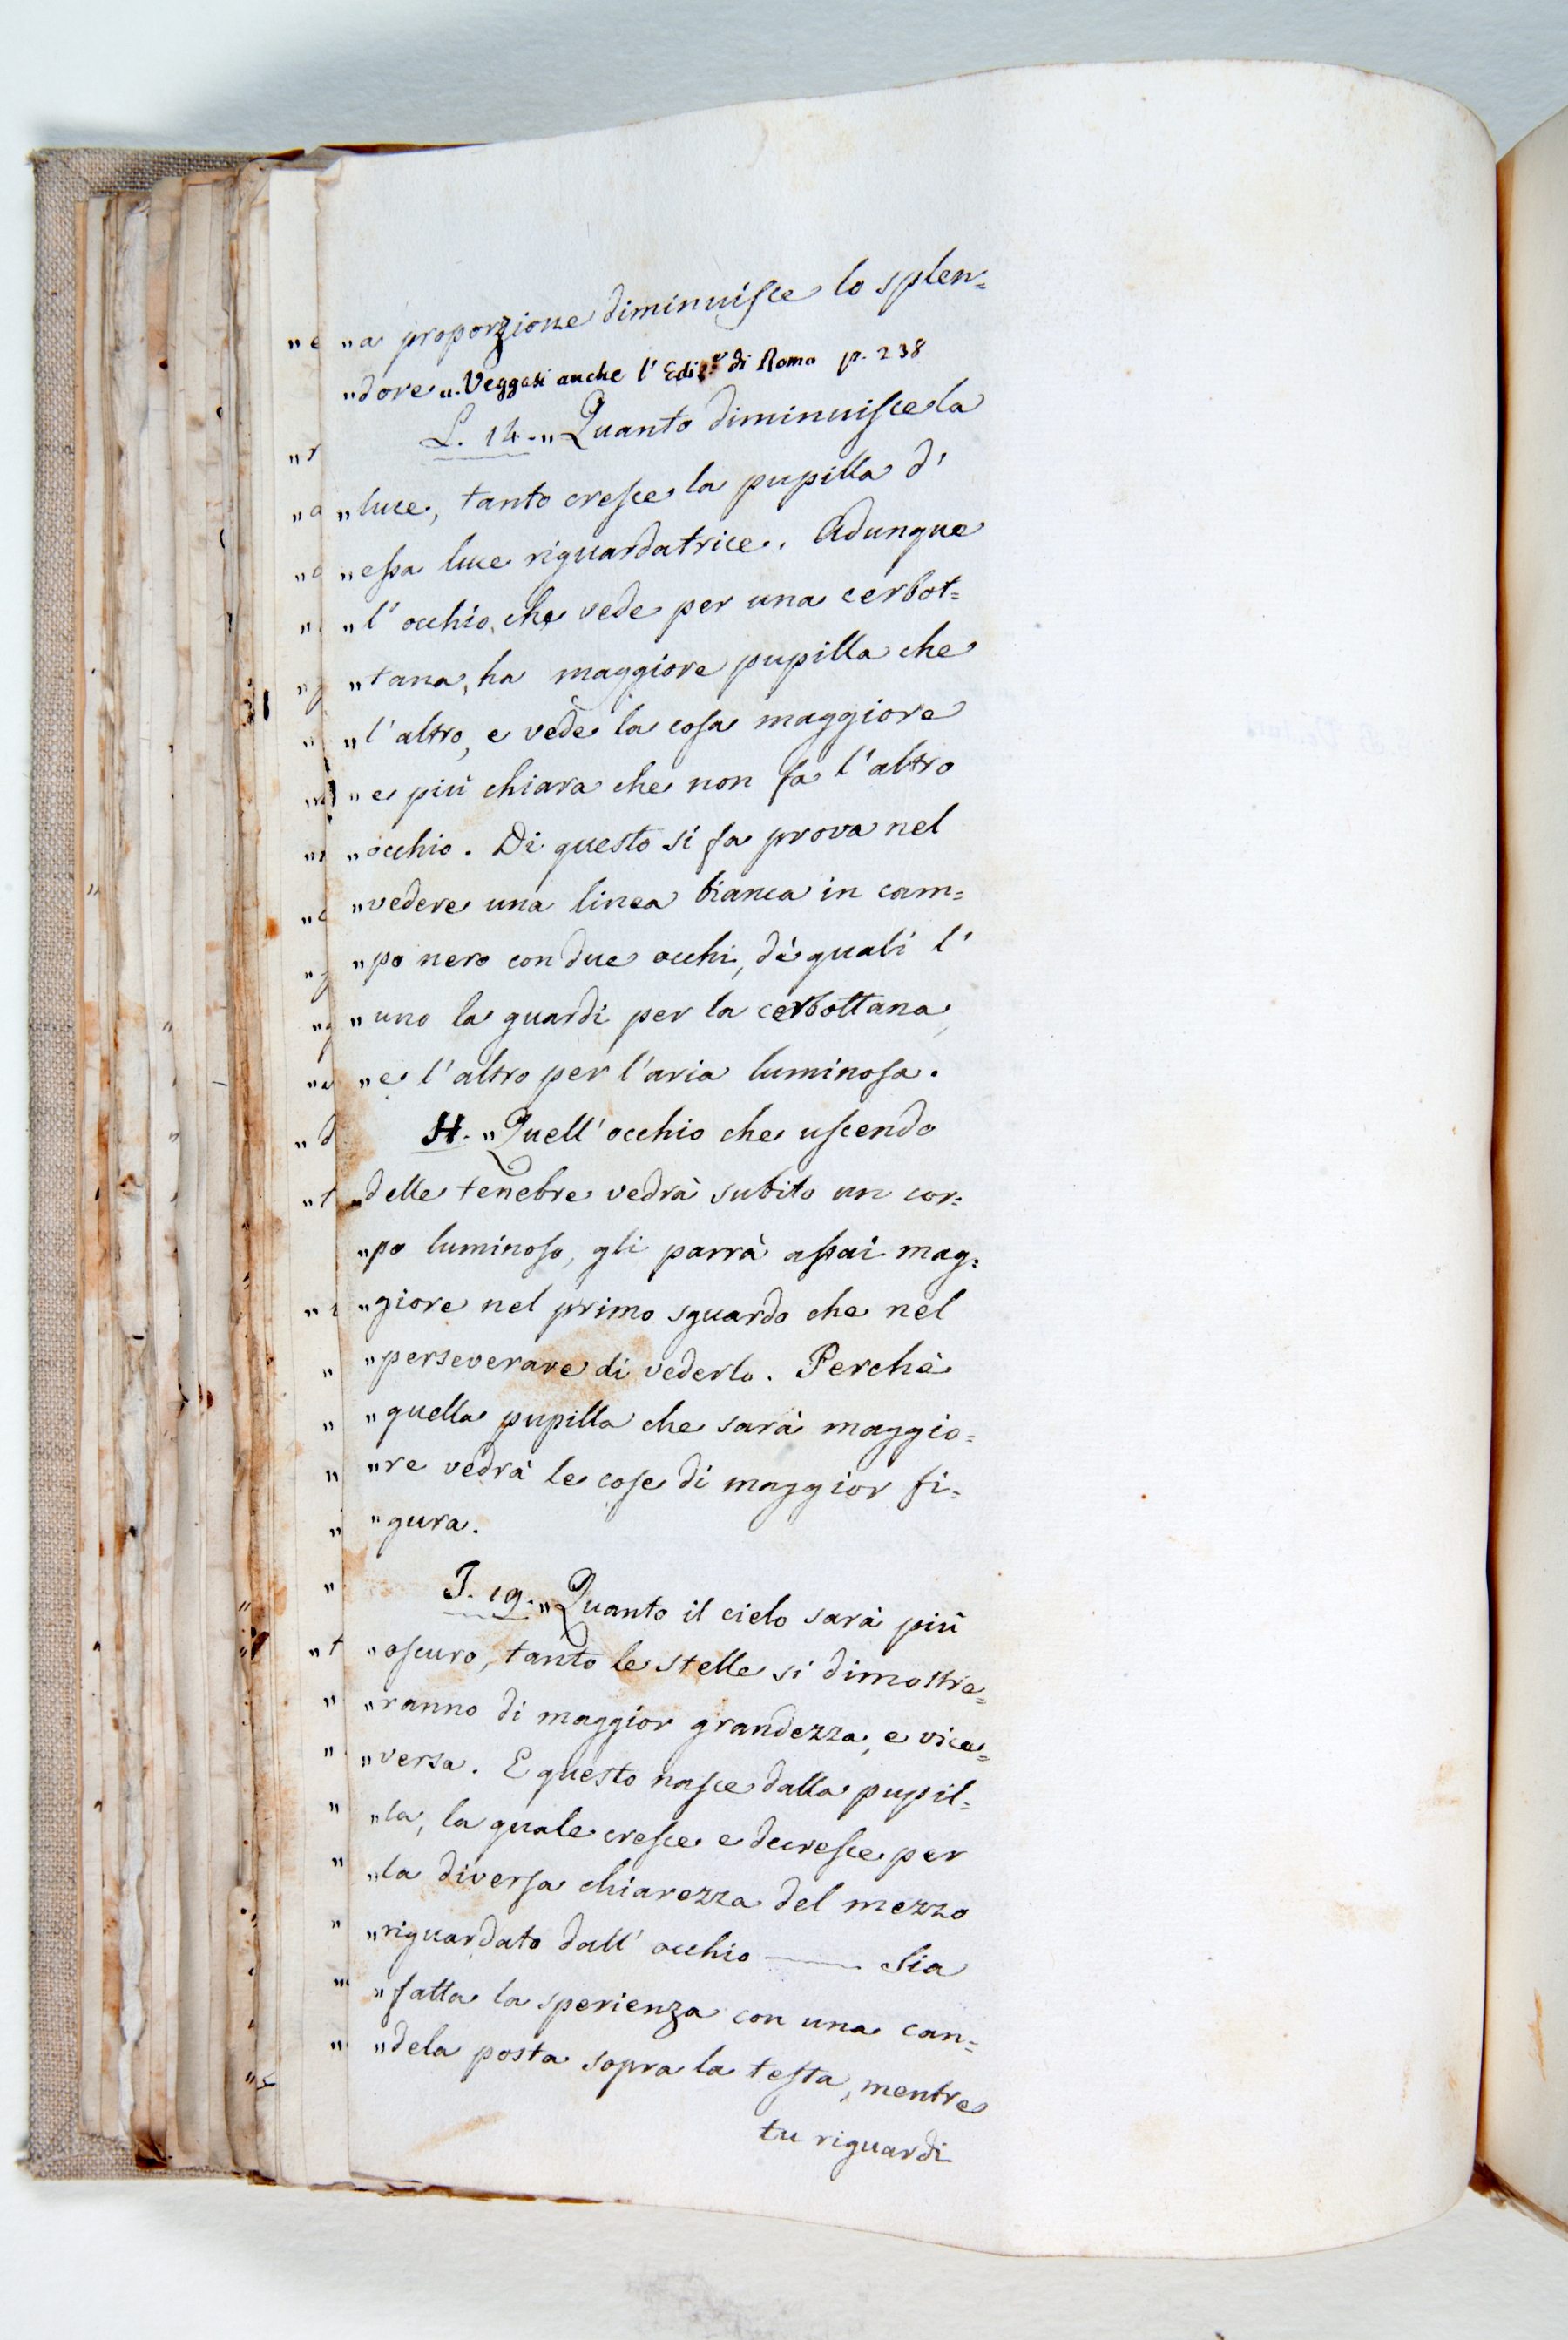 „a proporzione diminuisce lo splen=
„dore„. Veggasi anche l'Ediz.e di Roma p. 238
L. 14. „Quanto diminuisce la
„luce, tanto cresce la pupilla d'
„essa luce riguardatrice. Adunque
„l'occhio, che vede per una cerbot=
„tana, ha maggiore pupilla che
„l'altro, e vede la cosa maggiore
„e più chiara che non fa l'altro
„occhio. Di questo si fa prova nel
„vedere una linea bianca in cam=
„po nero con due occhi, de' quali l'
„uno la guardi per la cerbottana,
„e l'altro per l'aria luminosa.
H. „Quell'occhio che uscendo
„delle tenebre vedrà subito un cor=
„po luminoso, gli parrà assai mag=
„giore nel primo sguardo che nel
„perseverare di vederlo. Perchè
„quella pupilla che sarà maggio=
„re vedrà le cose di maggior fi=
„gura.
I. 19. „Quanto il cielo sarà più
„oscuro, tanto le stelle si dimostre=
„ranno di maggior grandezza, e vice=
„versa. E questo nasce dalla pupil=
„la, la quale cresce e decresce per
„la diversa chiarezza del mezzo
„riguardato dall'occhio —— Sia
„fatta la sperienza con una can=
„dela posta sopra la testa, mentre
tu riguardi